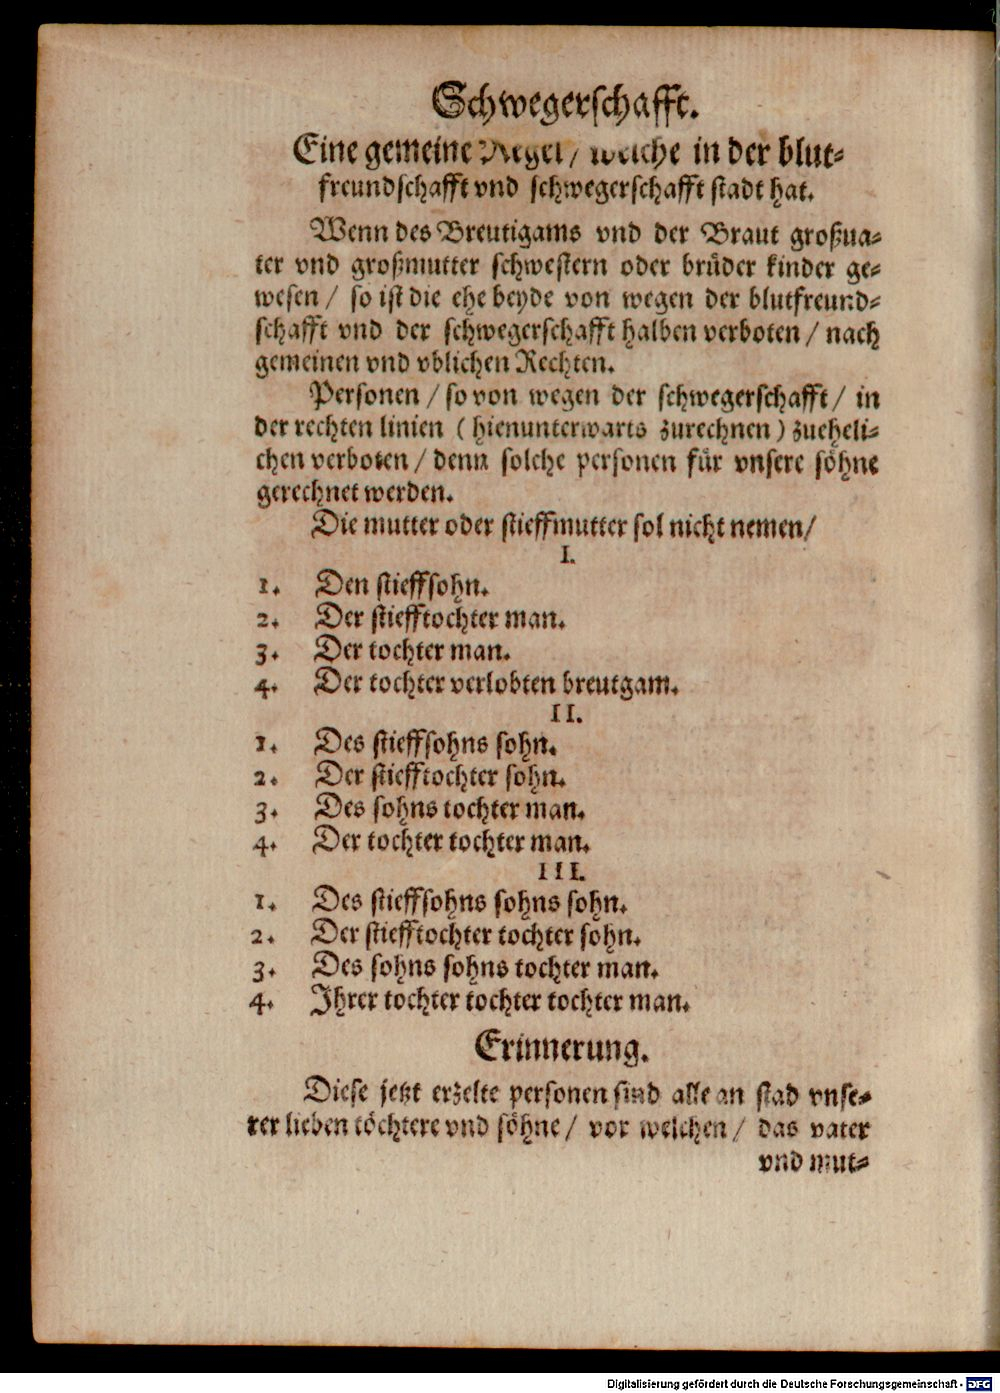 Schwegerschafft.
Eine gemeine Regel / welche in der blut⸗
freundschafft vnd schwegerschafft stadt hat.
Wenn des Breutigams vnd der Braut großua⸗
ter vnd großmutter schwestern oder brůder kinder ge⸗
wesen / so ist die ehe beyde von wegen der blutfreund⸗
schafft vnd der schwegerschafft halben verboten / nach
gemeinen vnd vblichen Rechten.
Personen / so von wegen der schwegerschafft / in
der rechten linien ( hienunterwarts zurechnen ) zueheli⸗
chen verboten / denn solche personen für vnsere söhne
gerechnet werden.
Die mutter oder stieffmutter sol nicht nemen /
I.
1. Den stieffsohn.
2. Der stiefftochter man.
3. Der tochter man.
4. Der tochter verlobten breutgam.
II.
1. Des stieffsohns sohn.
2. Der stiefftochter sohn.
3. Des sohns tochter man.
4. Der tochter tochter man.
III.
1. Des stieffsohns sohns sohn.
2. Der stiefftochter tochter sohn.
3. Des sohns sohns tochter man.
4. Ihrer tochter tochter tochter man.
Erinnerung.
Diese jetzt erzelte personen sind alle an stad vnse⸗
rer lieben töchtere vnd söhne / vor welchen / das vater
vnd mut⸗
Digitalisierung gefördert durch die Deutsche Forschungsgemeinschaft - DFG